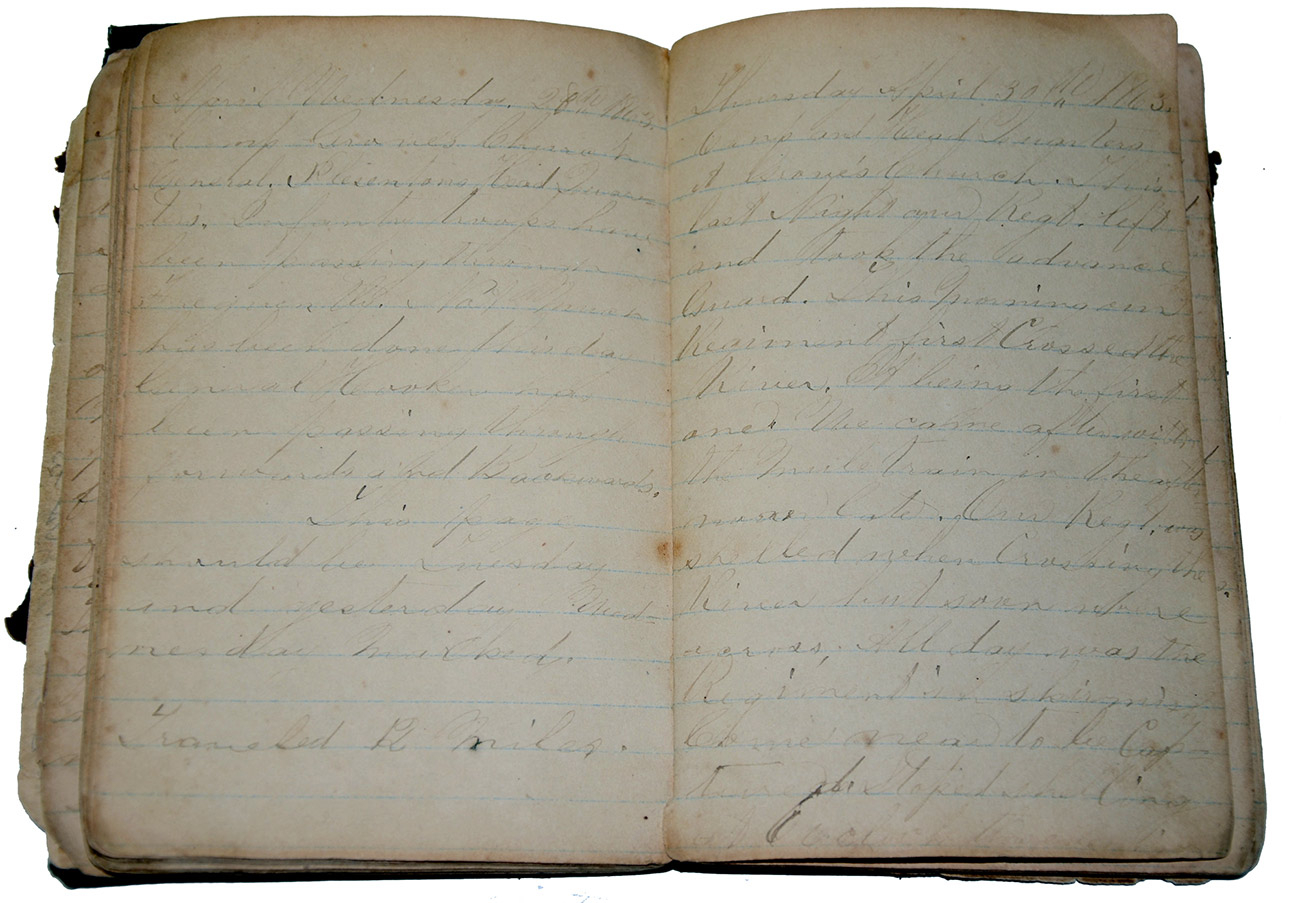 April Wednesday. 28th 1863.
Camp Grove's Church
General. Plesentons Head Quar-
ters. Infantry troops have
been passing through
has been done this da
General Hooker has
been passing through
forwards and Backwards.
This page
should be Tuesday
and yesterday Wed-
nesday mixed.
Traveled 12 miles.
Thursday April. 30th 1863.
Camp and Head Quarters
at Grove's Church. This
last Night our Regt. left
and took the advance
Guard. This morning our
Regiment first Crossed the
River. It being the first
one. We came after with
the Mule train in the after
noon late. Our Regt. was
shelled when Crossing the
River but soon where
across. All day was the
Regiment in skirmish
Come near to be Cap-
tured. Stoped in